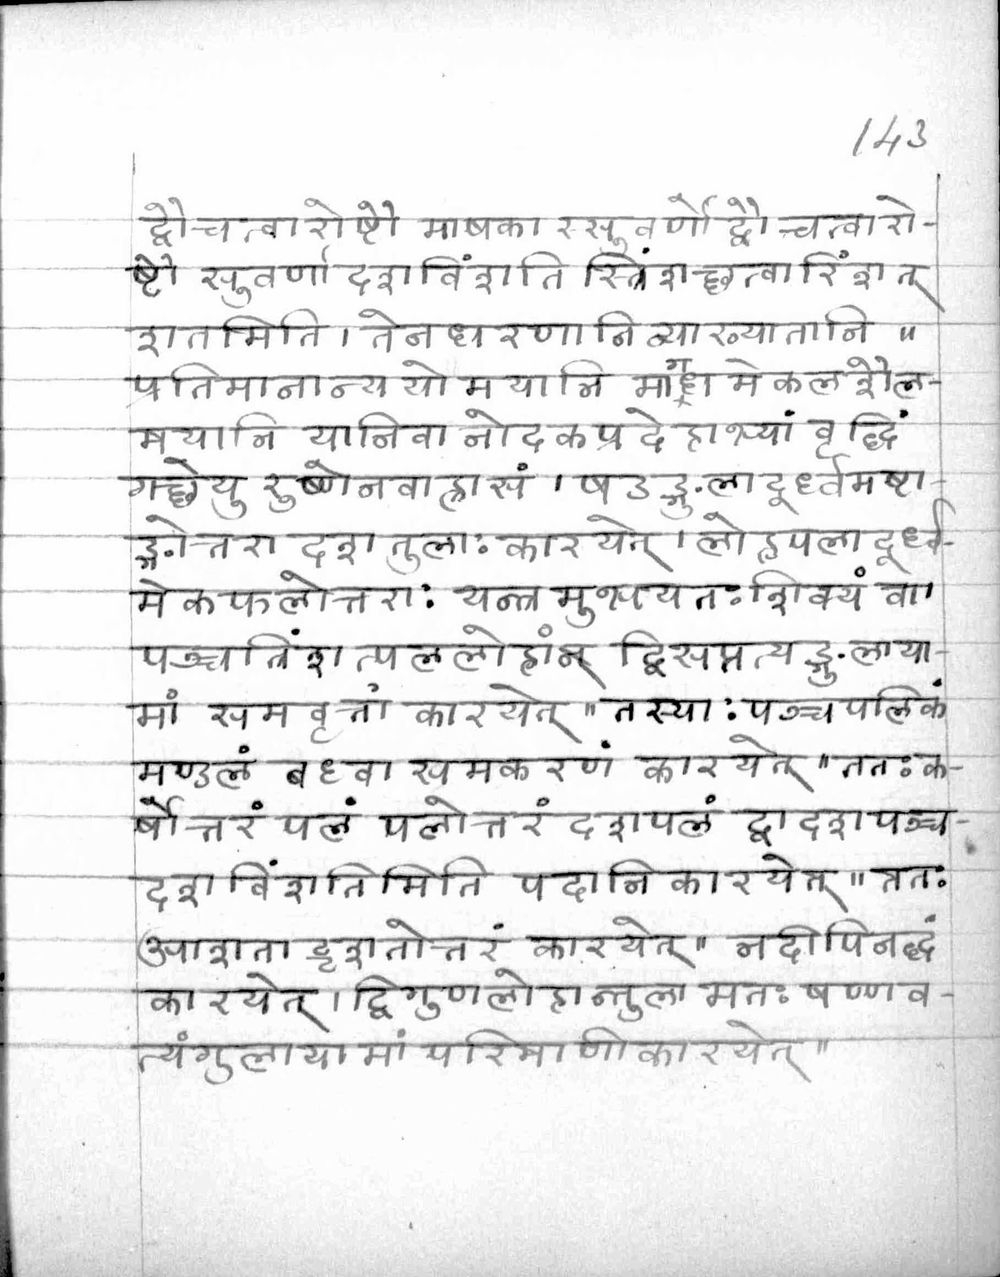 143
द्वौ चत्वारोष्टौ माषका स्सुवर्णो द्वौ चत्वारो-
ष्टौ सुवर्णा दशविंशति स्त्रिंशच्चत्वारिंशत्
शतमिति। तेन धरणानि व्याख्यातानि॥
प्रतिमानान्ययोमयानि मागध मेकल शैल-
मयानि यानिवा नोदकप्रदेहाभ्यां वृद्धिं
गच्छेयु रुष्णेनवाह्रासं। षडङ्गुलादूर्ध्वमष्टा-
ङ्गोत्तरा दशतुलाः कारयेत्। लोहपलादूर्ध्व-
मेकफलोत्तराः यन्त्रमुभयतः शिक्यं वा।
पञ्चत्रिंशत्पललोहांन् द्विसप्तत्यङ्गुलाया-
मां समवृत्तां कारयेत्॥ तस्याः पञ्चपलिकं
मण्डलं बध्वा समकरणं कारयेत्॥ ततः क-
र्षोत्तरं पलं पलोत्तरं दशपलं द्वादशपञ्च-
दशविंशतिमिति पदानि कारयेत्॥ ततः
आशताद्दशतोत्तरं कारयेत्॥ नदीपिनद्धं
कारयेत्। द्विगुणलोहान्तुला मतः षण्णव-
त्यंगुलायामां परिमाणीं कारयेत्॥